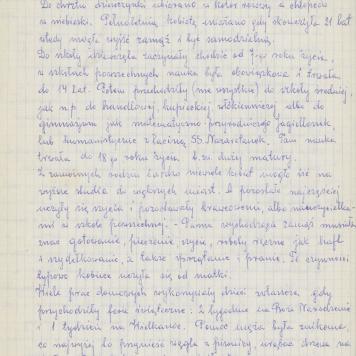 Do chrztu dziewczynki ubierano w kolor różowy a chłopców
w niebieski. Pełnoletnią kobietę uważano gdy skończyła 21 lat
wtedy mogła wyjść zamąż i być samodzielną.
Do szkoły dziewczęta zaczynały chodzić od 7-go roku życia,
w szkołach powszechnych nauka była obowiązkowa i trwała
do 14 lat. Potem przechodziły (nie wszystkie) do szkoły średniej,
jak np do handlowej, kupieckiej, włókienniczej albo do
gimnazjum jak matematyczno przyrodniczego jagiellonek
lub humanistyczne z łaciną SS. Nazaretanek. Tam nauka
trwała do 18-go roku życia t. zw. dużej matury.
Z zamożnych rodzin bardzo niewiele kobiet mogło iść na
wyższe studia do większych miast. A pozostałe najczęściej
uczyły się szycia i pozostawały krawcowemi, albo nauczycielka-
mi w szkole powszechnej. - Panna wychodząca zamąż musiała
znać gotowanie, pieczenie, szycie, roboty ręczne jak haft
i szydełkowanie, a także sprzątanie i pranie. Te czynności
typowo kobiece uczyła się od matki.
Wiele prac domowych wykonywały dzieci zwłaszcza gdy
przychodziły ferie świąteczne: 2 tygodnie na Boże Narodzenie
i 1 tydzień na Wielkanoc. Pomoc nasza była znikoma,
co najwyżej to przynieść węgla z piwnicy, urąbać drzewa na